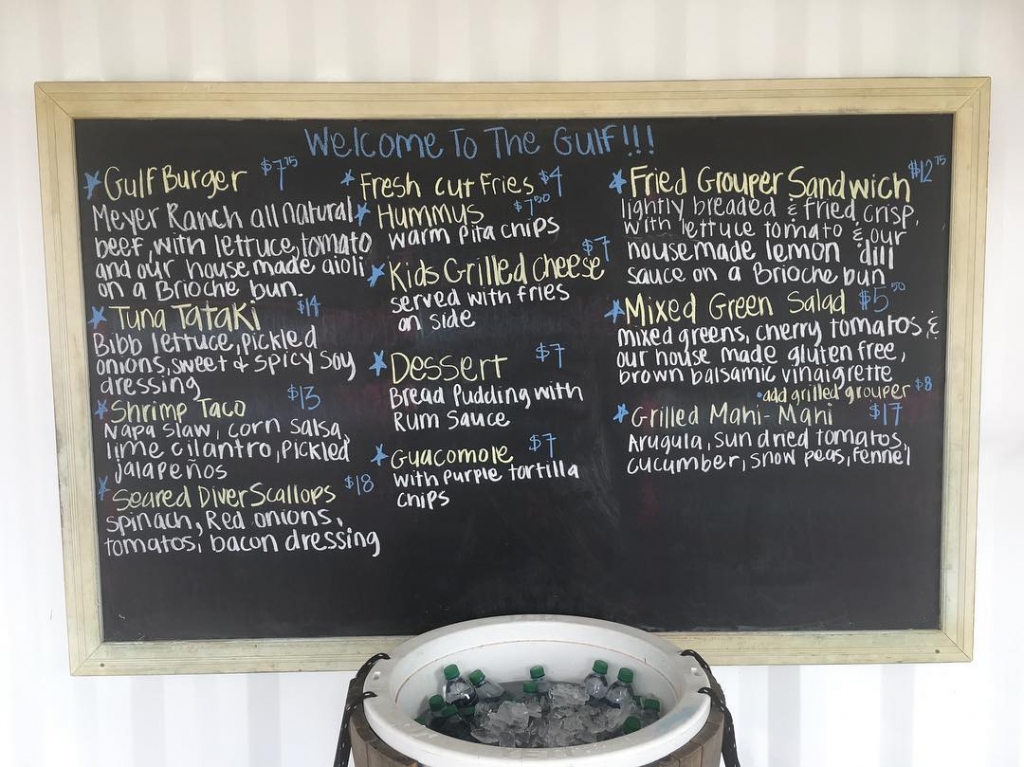 Welcome To The Gulf!!!
Gulf Burger $7.75
Meyer Ranch all natural
beef, with lettuce, tomato
and our house made aioli
on a Brioche bun.
Tuna Tataki $14
Bibb lettuce, pickled
onions, sweet & spicy soy
dressing
Shrimp Taco $13
Napa slaw, corn salsa,
lime cilantro, pickled
jalapeños
Seared Diver Scallops $18
spinach, Red onions,
tomatos, bacon dressing
Fresh cut Fries $4
Hummus $7.50
warm pita chips
Kids Grilled Cheese $7
served with fries
on side
Dessert $7
Bread Pudding with
Rum Sauce
Guacomole $7
with purple tortilla
chips
Fried Grouper Sandwich $12.75
lightly breaded & fried crisp,
with lettuce tomato & our
house made lemon dill
sauce on a Brioche bun
Mixed Green Salad $5.50
mixed greens, cherry tomatos &
our house made gluten free,
brown balsamic vinaigrette
•add grilled grouper $8
Grilled Mahi-Mahi $17
Arugula, sun dried tomatos,
cucumber, snow peas, fennel